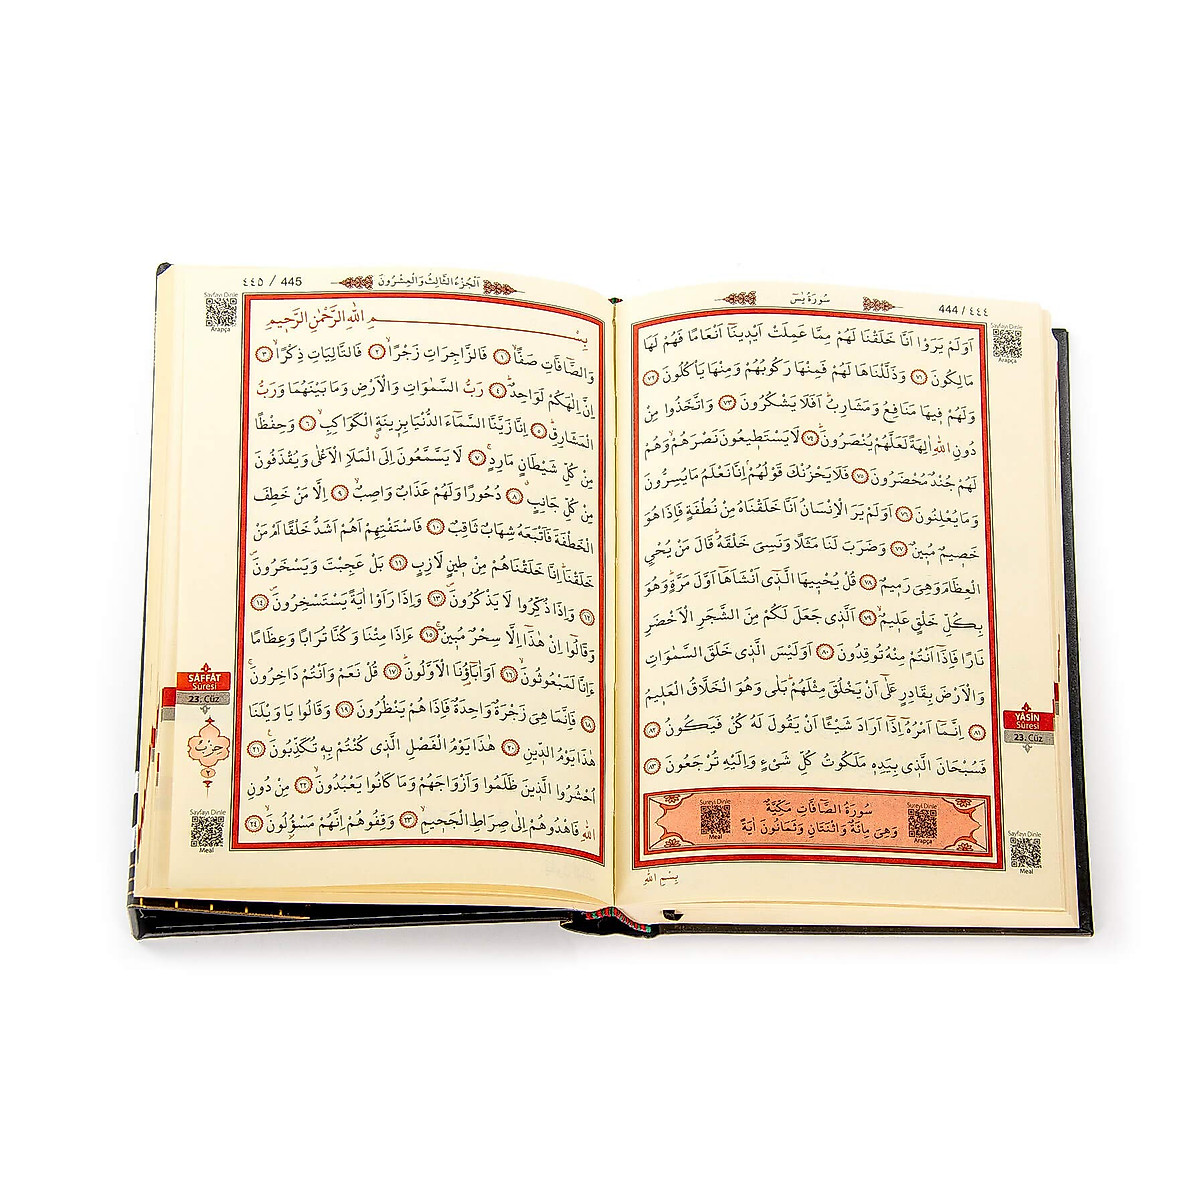 سُورَةُ يٰسٓ
444 / ٤٤٤
Sayfayı Dinle
Arapça
اَوَلَمْ يَرَوْا اَنَّا خَلَقْنَا لَهُمْ مِمَّا عَمِلَتْ اَيْد۪ينَٓا اَنْعَامًا فَهُمْ لَهَا
مَالِكُونَ ﴿٧١﴾ وَذَلَّلْنَاهَا لَهُمْ فَمِنْهَا رَكُوبُهُمْ وَمِنْهَا يَأْكُلُونَ ﴿٧٢﴾
وَلَهُمْ ف۪يهَا مَنَافِعُ وَمَشَارِبُۜ اَفَلَا يَشْكُرُونَ ﴿٧٣﴾ وَاتَّخَذُوا مِنْ
دُونِ اللّٰهِ اٰلِهَةً لَعَلَّهُمْ يُنْصَرُونَۜ ﴿٧٤﴾ لَا يَسْتَط۪يعُونَ نَصْرَهُمْۙ وَهُمْ
لَهُمْ جُنْدٌ مُحْضَرُونَ ﴿٧٥﴾ فَلَا يَحْزُنْكَ قَوْلُهُمْۢ اِنَّا نَعْلَمُ مَا يُسِرُّونَ
وَمَا يُعْلِنُونَ ﴿٧٦﴾ اَوَلَمْ يَرَ الْاِنْسَانُ اَنَّا خَلَقْنَاهُ مِنْ نُطْفَةٍ فَاِذَا هُوَ
خَص۪يمٌ مُب۪ينٌ ﴿٧٧﴾ وَضَرَبَ لَنَا مَثَلًا وَنَسِيَ خَلْقَهُۜ قَالَ مَنْ يُحْيِ
الْعِظَامَ وَهِيَ رَم۪يمٌ ﴿٧٨﴾ قُلْ يُحْي۪يهَا الَّذ۪ٓي اَنْشَاَهَٓا اَوَّلَ مَرَّةٍۜ وَهُوَ
بِكُلِّ خَلْقٍ عَل۪يمٌۙ ﴿٧٩﴾ اَلَّذ۪ي جَعَلَ لَكُمْ مِنَ الشَّجَرِ الْاَخْضَرِ
نَارًا فَاِذَٓا اَنْتُمْ مِنْهُ تُوقِدُونَ ﴿٨٠﴾ اَوَلَيْسَ الَّذ۪ي خَلَقَ السَّمٰوَاتِ
وَالْاَرْضَ بِقَادِرٍ عَلٰٓى اَنْ يَخْلُقَ مِثْلَهُمْۜ بَلٰى وَهُوَ الْخَلَّاقُ الْعَل۪يمُ
﴿٨١﴾ اِنَّمَٓا اَمْرُهُٓ اِذَٓا اَرَادَ شَيْـًٔا اَنْ يَقُولَ لَهُ كُنْ فَيَكُونُ ﴿٨٢﴾
فَسُبْحَانَ الَّذ۪ي بِيَدِه۪ مَلَكُوتُ كُلِّ شَيْءٍ وَاِلَيْهِ تُرْجَعُونَ ﴿٨٣﴾
Sureyi Dinle
Arapça
سُورَةُ الصَّٓافَّاتِ مَكِّيَّةٌ
وَهِيَ مِائَةٌ وَاثْنَتَانِ وَثَمَانُونَ اٰيَةً
Sureyi Dinle
Meal
بِسْمِ اللّٰهِ
YÂSÎN
Sûresi
23. Cüz
Sayfayı Dinle
Meal
اَلْجُزْءُ الثَّالِثُ وَالْعِشْرُونَ
٤٤٥ / 445
Sayfayı Dinle
Arapça
بِسْمِ اللّٰهِ الرَّحْمٰنِ الرَّح۪يمِ
وَالصَّٓافَّاتِ صَفًّاۙ ﴿١﴾ فَالزَّاجِرَاتِ زَجْرًاۙ ﴿٢﴾ فَالتَّالِيَاتِ ذِكْرًاۙ ﴿٣﴾
اِنَّ اِلٰهَكُمْ لَوَاحِدٌۜ ﴿٤﴾ رَبُّ السَّمٰوَاتِ وَالْاَرْضِ وَمَا بَيْنَهُمَا وَرَبُّ
الْمَشَارِقِۜ ﴿٥﴾ اِنَّا زَيَّنَّا السَّمَٓاءَ الدُّنْيَا بِز۪ينَةٍۨ الْكَوَاكِبِۙ ﴿٦﴾ وَحِفْظًا
مِنْ كُلِّ شَيْطَانٍ مَارِدٍۚ ﴿٧﴾ لَا يَسَّمَّعُونَ اِلَى الْمَلَأِ الْاَعْلٰى وَيُقْذَفُونَ
مِنْ كُلِّ جَانِبٍۗ ﴿٨﴾ دُحُورًا وَلَهُمْ عَذَابٌ وَاصِبٌۙ ﴿٩﴾ اِلَّا مَنْ خَطِفَ
الْخَطْفَةَ فَاَتْبَعَهُ شِهَابٌ ثَاقِبٌ ﴿١٠﴾ فَاسْتَفْتِهِمْ اَهُمْ اَشَدُّ خَلْقًا اَمْ مَنْ
خَلَقْنَاۜ اِنَّا خَلَقْنَاهُمْ مِنْ ط۪ينٍ لَازِبٍ ﴿١١﴾ بَلْ عَجِبْتَ وَيَسْخَرُونَۖ
﴿١٢﴾ وَاِذَا ذُكِّرُوا لَا يَذْكُرُونَۖ ﴿١٣﴾ وَاِذَا رَاَوْا اٰيَةً يَسْتَسْخِرُونَۖ ﴿١٤﴾
وَقَالُٓوا اِنْ هٰذَٓا اِلَّا سِحْرٌ مُب۪ينٌۚ ﴿١٥﴾ ءَاِذَا مِتْنَا وَكُنَّا تُرَابًا وَعِظَامًا
ءَاِنَّا لَمَبْعُوثُونَۙ ﴿١٦﴾ اَوَاٰبَٓاؤُ۬نَا الْاَوَّلُونَۜ ﴿١٧﴾ قُلْ نَعَمْ وَاَنْتُمْ دَاخِرُونَۚ
﴿١٨﴾ فَاِنَّمَا هِيَ زَجْرَةٌ وَاحِدَةٌ فَاِذَا هُمْ يَنْظُرُونَ ﴿١٩﴾ وَقَالُوا يَا وَيْلَنَا
هٰذَا يَوْمُ الدّ۪ينِ ﴿٢٠﴾ هٰذَا يَوْمُ الْفَصْلِ الَّذ۪ي كُنْتُمْ بِه۪ تُكَذِّبُونَ۟ ﴿٢١﴾
اُحْشُرُوا الَّذ۪ينَ ظَلَمُوا وَاَزْوَاجَهُمْ وَمَا كَانُوا يَعْبُدُونَۙ ﴿٢٢﴾ مِنْ دُونِ
اللّٰهِ فَاهْدُوهُمْ اِلٰى صِرَاطِ الْجَح۪يمِۙ ﴿٢٣﴾ وَقِفُوهُمْ اِنَّهُمْ مَسْؤُ۫لُونَۙ ﴿٢٤﴾
SÂFFÂT
Sûresi
23. Cüz
حِزْبٌ
٢
Sayfayı Dinle
Meal